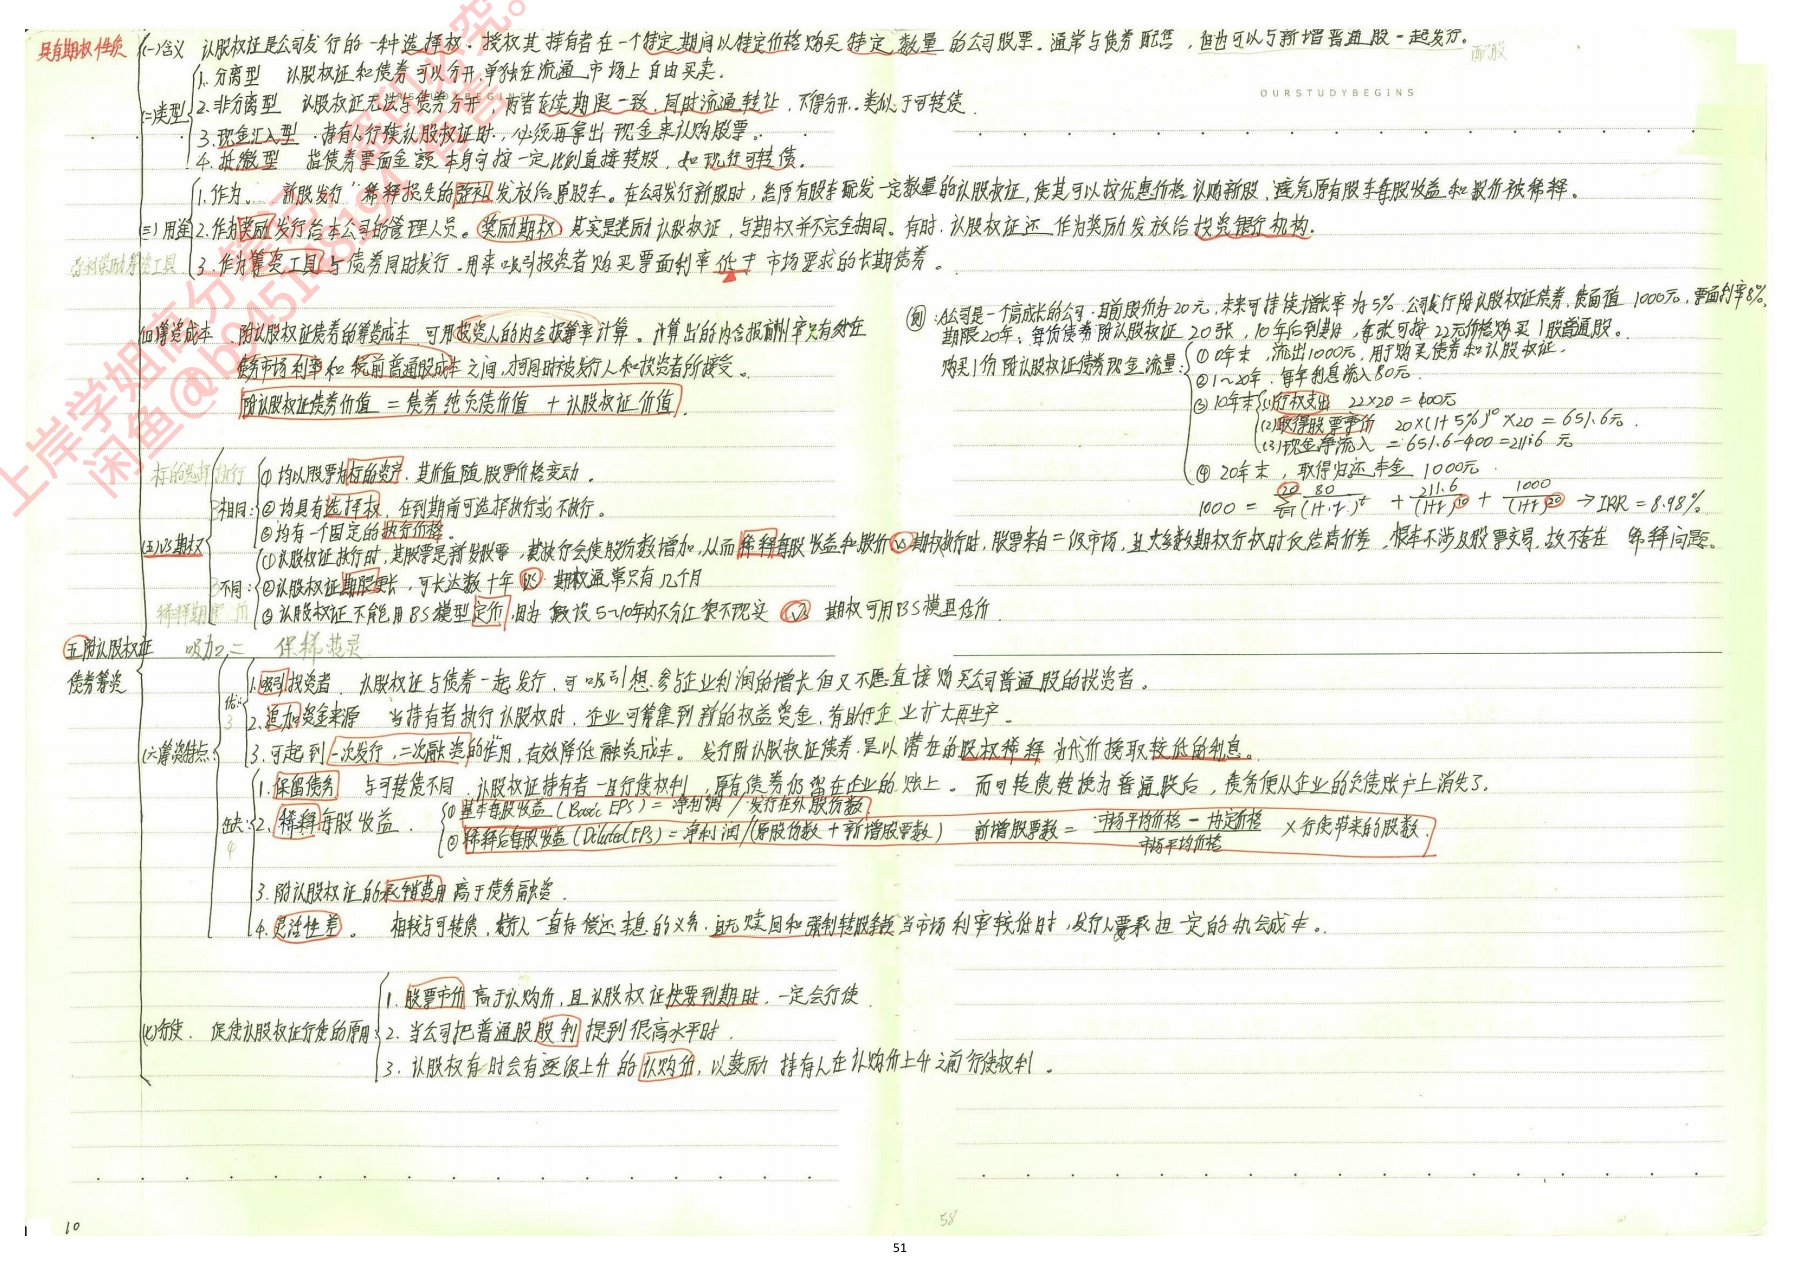 具有期权性质
(一)含义 认股权证是公司发行的一种选择权，授权其持有者在一个特定期间以特定价格购买特定数量的公司股票。通常与债券配售，但也可以与新增普通股一起发行。
配股
OURSTUDYBEGINS
(二)类型
1. 分离型 认股权证和债券可以分开，单独在流通市场上自由买卖.
2. 非分离型 认股权证无法与债券分开，两者存续期限一致，同时流通转让，不得分开. 类似于可转债.
3. 现金汇入型 持有人行使认股权证时，必须再拿出现金来认购股票。
4. 抵缴型 指债券票面金额本身可按一定比例直接转股，如现行可转债.
(三)用途
1. 作为 新股发行"稀释损失的弥补"发放给原股东。在公司发行新股时，给原有股东配发一定数量的认股权证，使其可以按优惠价格认购新股，避免原有股东每股收益和股价被稀释。
2. 作为奖励发行给本公司的管理人员。奖励期权 其实是奖励认股权证，与期权并不完全相同。有时，认股权证还作为奖励发放给投资银行机构.
3. 作为筹资工具 与债券同时发行，用来吸引投资者购买票面利率低于市场要求的长期债券。
弥补奖励筹资工具
(四)筹资成本 附认股权证债券的筹资成本可用投资人的内含报酬率计算。计算出的内含报酬率只有处在
债务市场利率和税前普通股成本之间，才可同时被发行人和投资者所接受。
附认股权证债券价值 = 债券纯负债价值 + 认股权证价值.
例: A公司是一个高成长的公司，目前股价为20元，未来可持续增长率为5%. 公司发行附认股权证债券，债面值1000元，票面利率8%,
期限20年，每份债券附认股权证20张，10年后到期，每张可按22元价格购买1股普通股。
购买1份附认股权证债券现金流量:
① 0年末，流出1000元，用于购买债券和认股权证.
② 1~20年，每年利息流入80元.
③ 10年末 (1)行权支出 22×20 = 400元
(2)取得股票市价 20×(1+5%)^10×20 = 651.6元.
(3)现金净流入 = 651.6-400 = 211.6 元
④ 20年末，取得归还本金 1000元.
1000 = Σ 80/(1+r)^t + 211.6/(1+r)^10 + 1000/(1+r)^20 → IRR = 8.98%
(五)VS期权
标的选择执行
相同:
① 均以股票为标的资产，其价值随股票价格变动。
② 均具有选择权，在到期前可选择执行或不执行。
③ 均有一个固定的执行价格。
不同:
① 认股权证执行时，其股票是新发股票，其执行会使股份数增加，从而稀释每股收益和股价 VS 期权执行时，股票来自二级市场，且大多数期权行权时仅结清价差，根本不涉及股票交易，故不存在稀释问题。
② 认股权证期限更长，可长达数十年 VS 期权通常只有几个月
③ 认股权证不能用BS模型定价，因为假设5~10年内不分红很不现实 VS 期权可用BS模型估价
稀释期限定价
五、附认股权证债券筹资
吸加二 保稀费灵
(六)筹资特点
优:3
1. 吸引投资者 认股权证与债券一起发行，可吸引想参与企业利润的增长但又不愿直接购买公司普通股的投资者。
2. 追加资金来源 当持有者执行认股权时，企业可筹集到新的权益资金，有助于企业扩大再生产。
3. 可起到一次发行，二次融资的作用，有效降低融资成本。 发行附认股权证债券，是以潜在的股权稀释为代价换取较低的利息。
缺:4
1. 保留债务 与可转债不同，认股权证持有者一旦行使权利，原有债券仍留在企业的账上。而可转债转换为普通股后，债务便从企业的负债账户上消失了.
2. 稀释每股收益.
① 基本每股收益(Basic EPS) = 净利润 / 发行在外股份数
② 稀释后每股收益(Diluted EPS) = 净利润/(原股份数 + 新增股票数) 新增股票数 = (市场平均价格 - 协定价格)/市场平均价格 × 行使带来的股数.
3. 附认股权证的承销费用高于债务融资.
4. 灵活性差。 相较与可转债，发行人一直有偿还本息的义务，且无赎回和强制转股条款，当市场利率较低时，发行人要承担一定的机会成本。
(七)行使. 促使认股权证行使的原因:
1. 股票市价高于认购价，且认股权证快要到期时，一定会行使.
2. 当公司把普通股股利提到很高水平时.
3. 认股权有时会有逐级上升的认购价，以鼓励持有人在认购价上升之前行使权利。
上岸学姐高分笔记
闲鱼@b9451481944
10
58
51